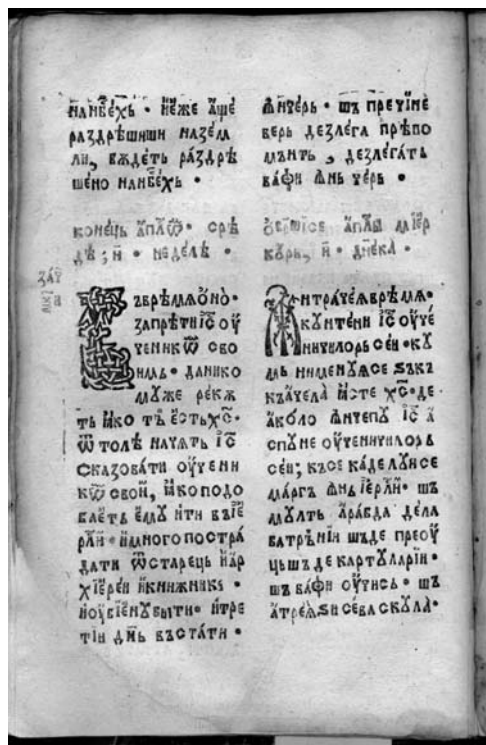 нанб҃ехь · и҆еже а҆ще
раздрѣшиши назем
ли, бѫдеть ра́здрѣ
шено нанб҃ехь ·
конець а҆пл҃ѡⷨ · срѣ
дѣ; и҃ · недѣлѣ ·
Въврѣмѧ о҆но ·
запрѣти і҆с҃ оу҆
ченикѡⷨ сво
имь · данико
мѹже рекѫ
ть ꙗ҆ко тъ є҆сть х҃с ·
ѿтолѣ начѧть і҆с҃
сказовати оу҆чени
кѡⷨ свои, ꙗ҆ко подо
баеть ємѹ ити въі҆є
рл҃и · и҆много постра
дати ѿстарець и҆ар
хїереи и҆книжникь ·
иоу҆бїенѹбыти · итре
тїи дн҃ь въстати ·
ꙟ҆черь · шъ пречине
верь дезлега прѣпо
мѫнть, дезлегать
вафи ꙟ҆нь черь ·
миер
кѹрь, и҃ ·
Ꙟтрачеꙗ врѣмѧ ·
кѹнтени і҆с҃ оу҆че
ничилорь сеи · кѹ
мь нименѹѧсе зъкъ
къ ачела ꙗ҆сте х҃с · де
аколо ꙟ҆чепѹ і҆с҃ а
спѹне оу҆ченичилорь
сеи; късекаделѹисе
маргъ ꙟ҆нь і҆ерл҃и · шъ
мѹлть арабда дела
батрѣнїи шъде преоу
цьшъдекартѹларїи ·
шъвафи оу҆чись · шъ
атреѧѕи севаскѹла ·